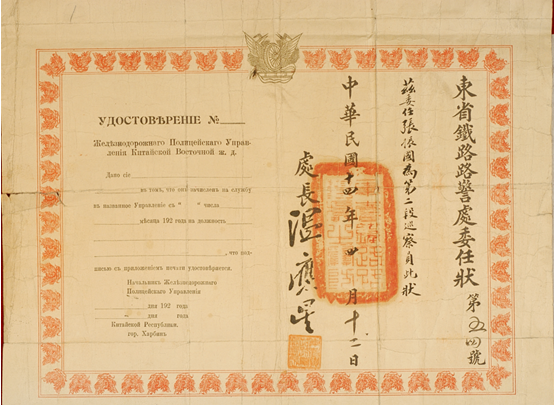 東省鐵路路警處委任狀
第五四號
茲委任張滋國為第二段巡察員此狀
中華民國十四年四月十二日
處長溫應星
УДОСТОВѢРЕНІЕ №
Желѣзнодорожнаго Полицейскаго Управ-
ленія Китайской Восточной ж. д.
Дано сіе
въ томъ, что онъ зачисленъ на службу
въ названное Управленіе съ " " числа
мѣсяца 192 года на должность
, что под-
писью съ приложеніемъ печати удостовѣряется.
Начальникъ Желѣзнодорожнаго
Полицейскаго Управленія
дня 192 года
дня года
Китайской Республики.
гор. Харбинъ